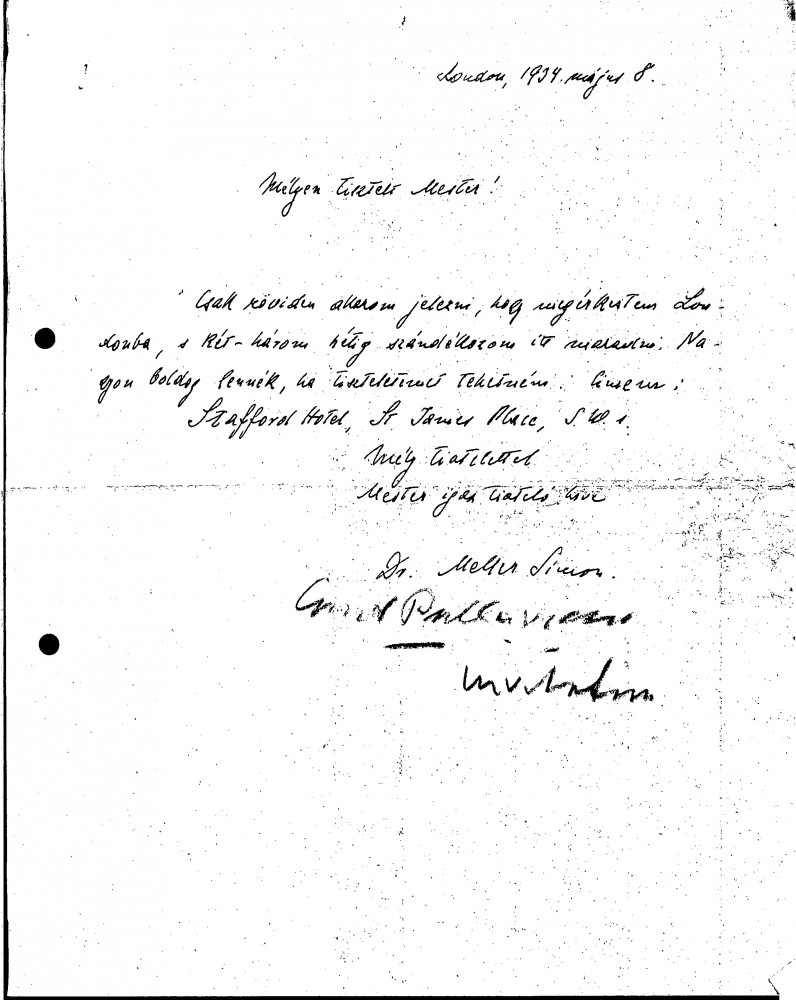 London, 1934. május 8.
Mélyen tisztelt Mester!
Csak röviden akarom jelezni, hogy megérkeztem Lon-
donba, s két-három hétig szándékozom itt maradni. Na-
gyon boldog lennék, ha tiszteletemet tehetném. Címem:
Stafford Hotel, St James Place, S.W. 1.
Mély tisztelettel
Mester igaz tisztelő híve
Dr. Meller Simon.
Pallavicini
Invitation